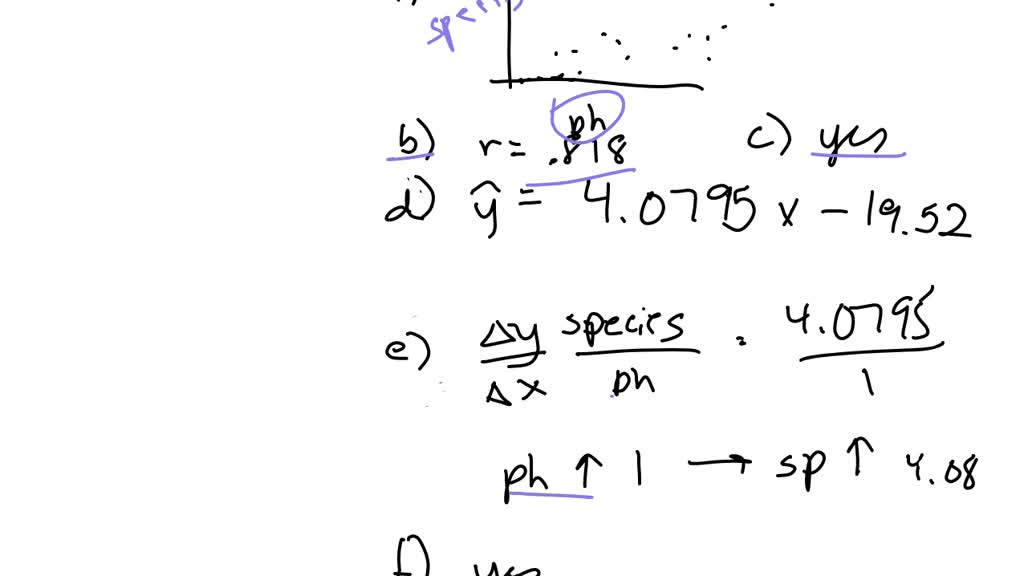 ph
b) r = .818 c) yes
d) ŷ = 4.0795 x - 19.52
e) Δy/Δx species/ph = 4.0795/1
ph ↑ 1 → sp ↑ 4.08
f) yes